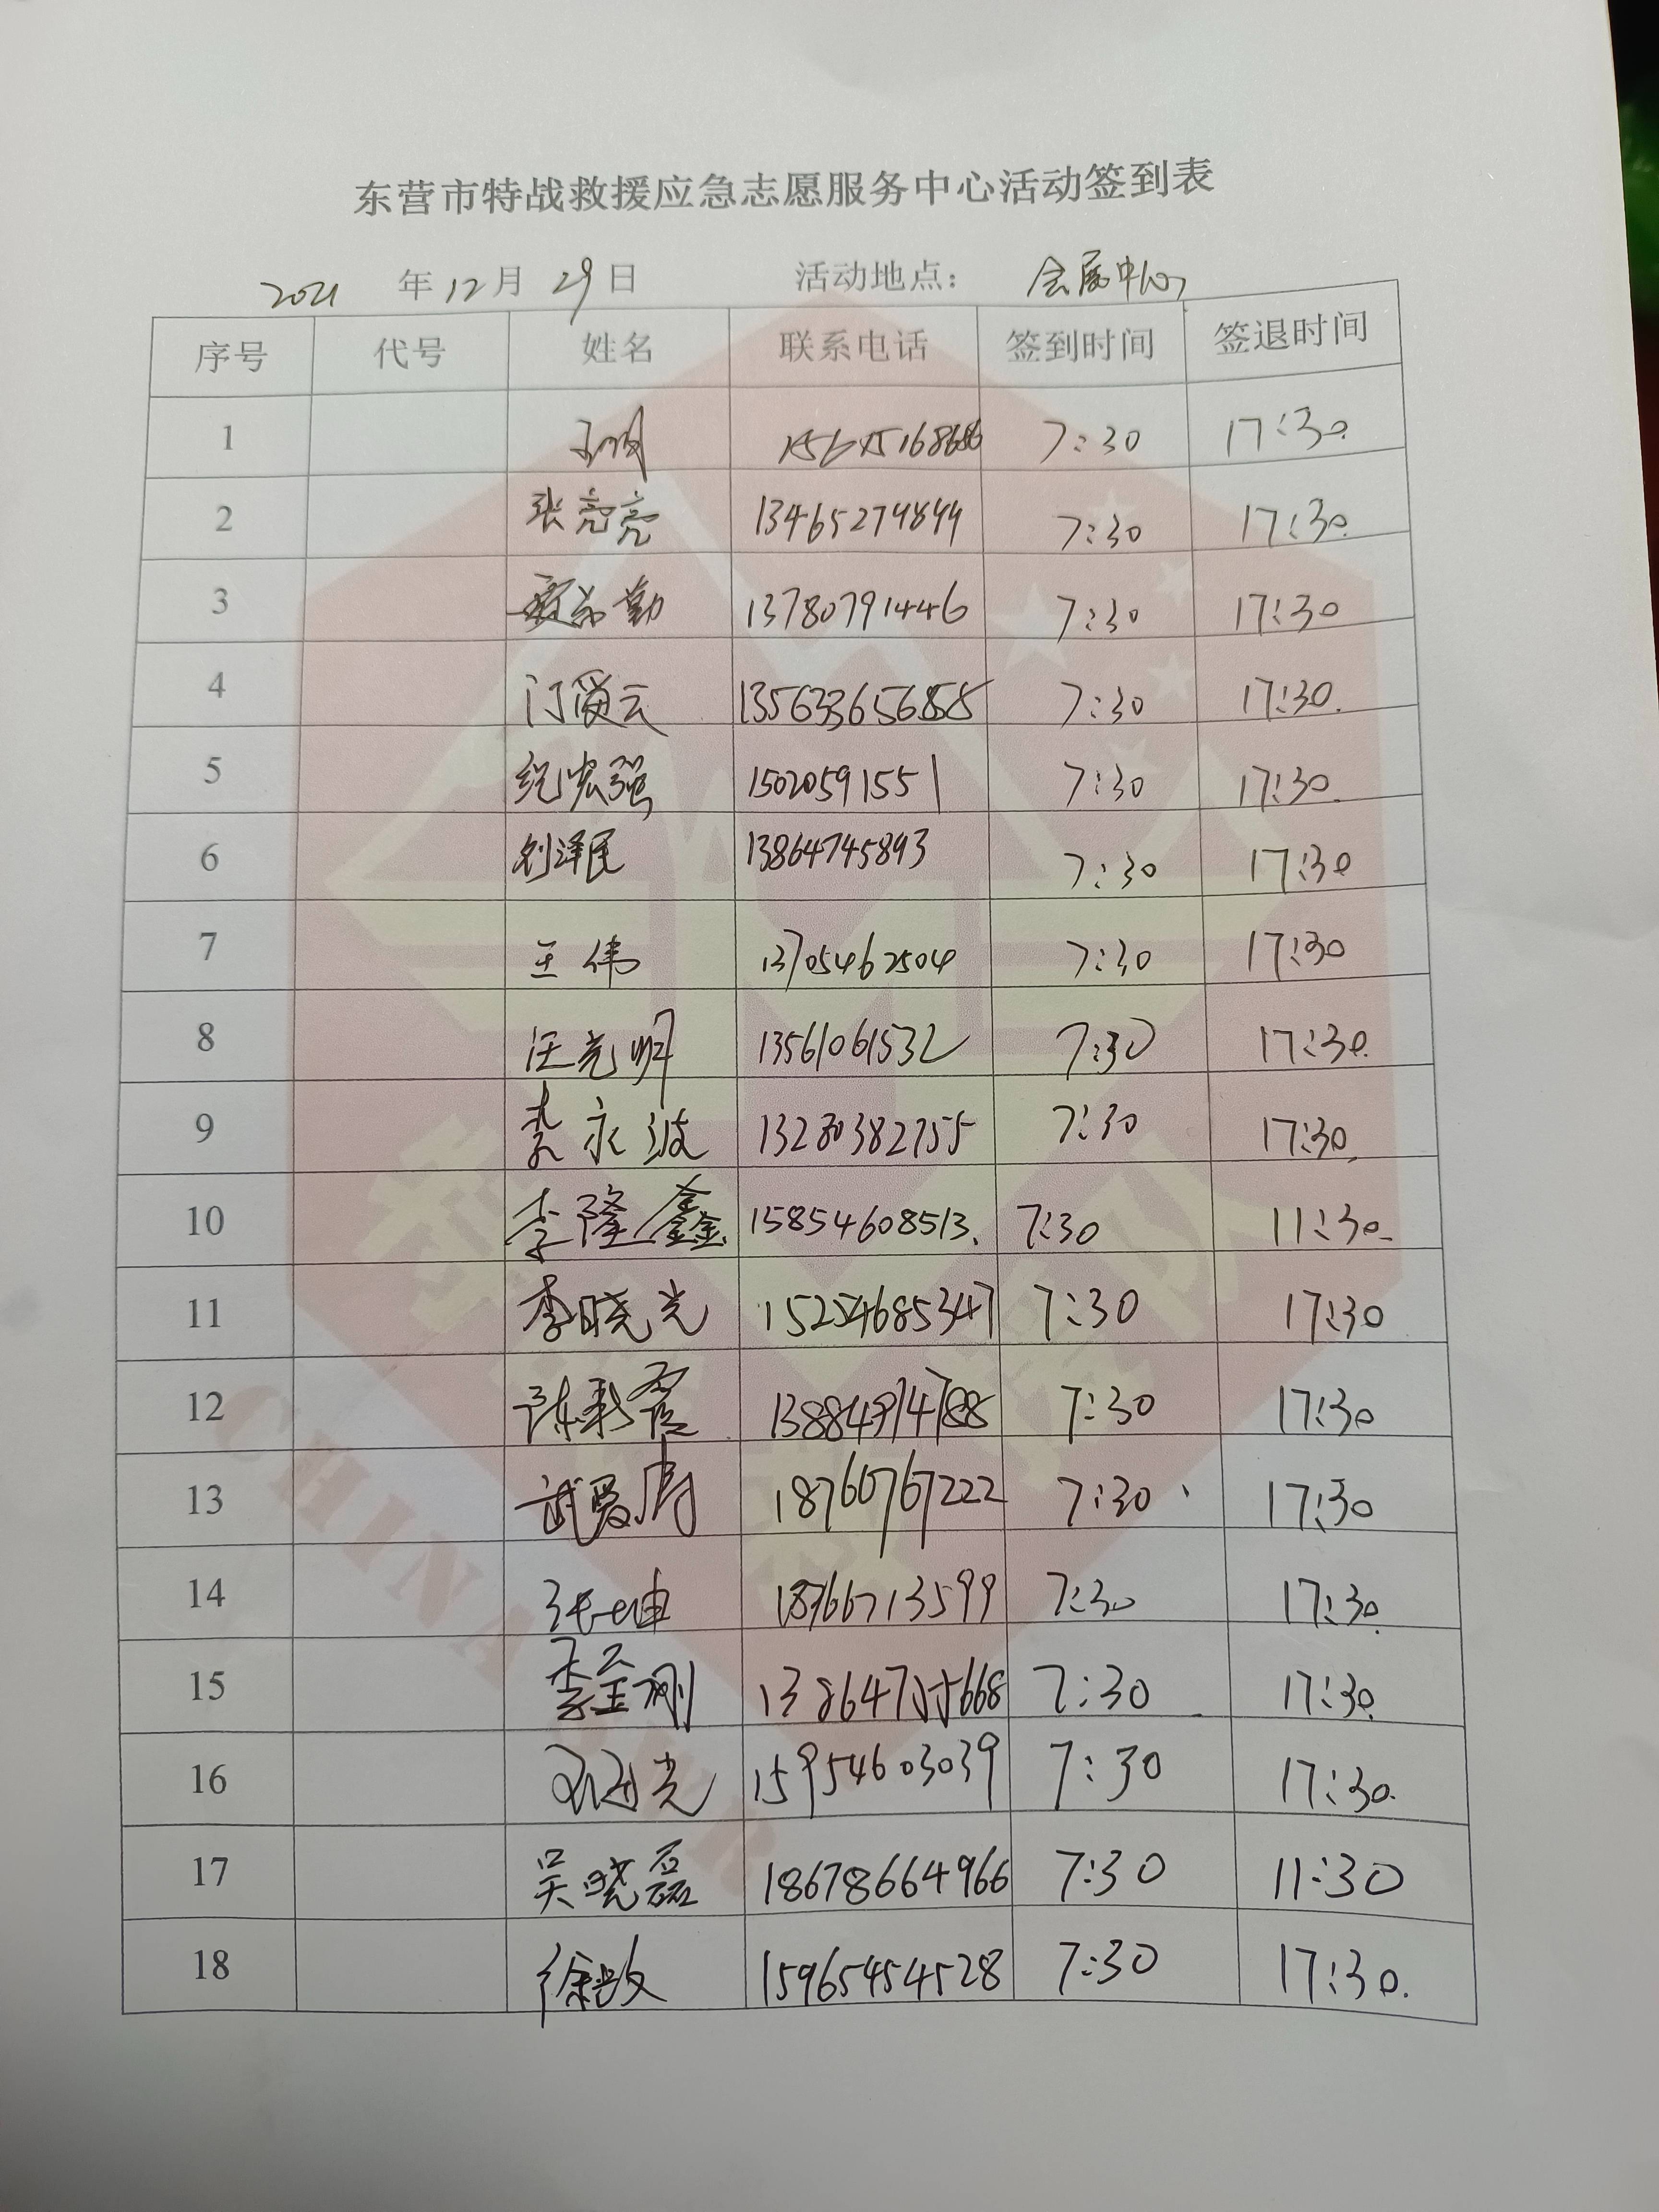 东营市特战救援应急志愿服务中心活动签到表
2021 年 12 月 29 日 活动地点： 会展中心
序号 代号 姓名 联系电话 签到时间 签退时间
1 7:30 17:30
2 张亮亮 13465274844 7:30 17:30
3 勤 13780791446 7:30 17:30
4 门爱云 7:30 17:30
5 纪宏强 15020591551 7:30 17:30
6 刘泽民 13864745893 7:30 17:30
7 王伟 13705462504 7:30 17:30
8 汪光明 13561061532 7:30 17:30
9 袁永波 13280382755 7:30 17:30
10 李隆鑫 15854608513 7:30 11:30
11 李晓光 15254685347 7:30 17:30
12 陈 霞 13884974788 7:30 17:30
13 武 18760767222 7:30 17:30
14 18766713599 7:30 17:30
15 李金刚 13864755668 7:30 17:30
16 光 15954603039 7:30 17:30
17 吴晓磊 18678664966 7:30 11:30
18 徐政 15965454528 7:30 17:30
CHINA